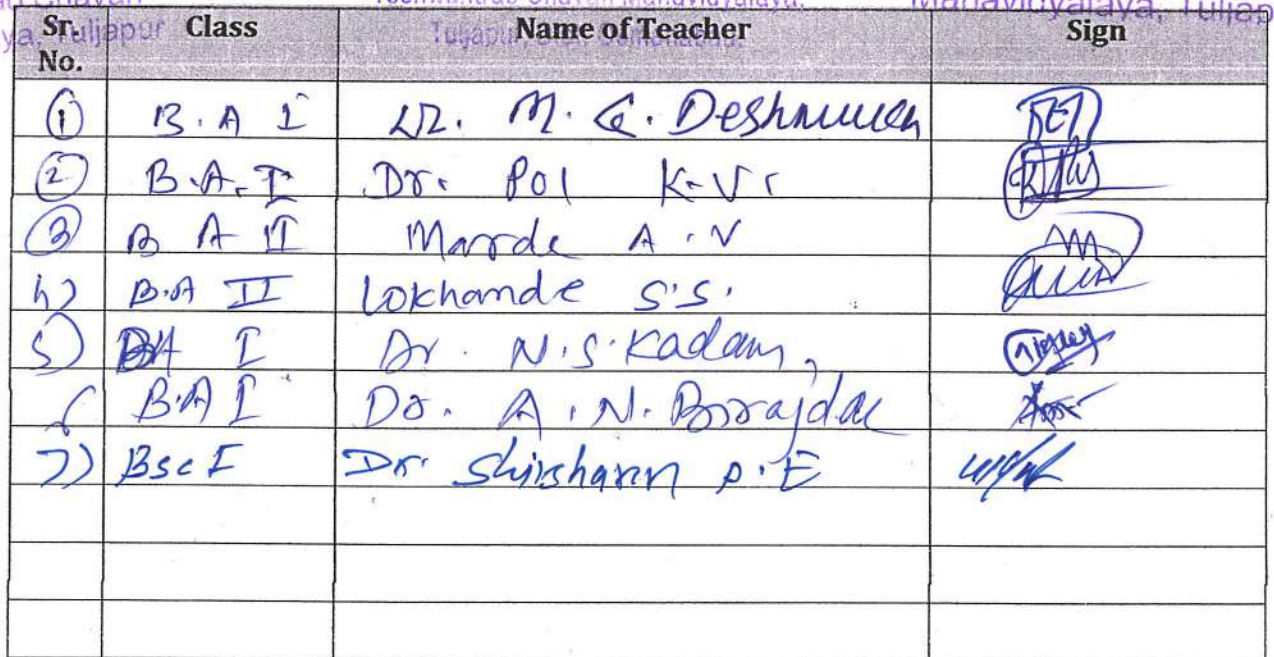 Mahavidyalaya, Tuljap
ya, Tuljapur
Sr. No. Class Name of Teacher Sign
1 B.A I M. G. Deshmukh
2 B.A. I Dr. Pol K.V.
3 B A II Marde A.V
4) B.A II Lokhande S.S.
5) BA I Dr. N.S. Kadam,
6 B.A I Dr. A.N. Birajdar
7) Bsc I Dr. Shirsham P.E